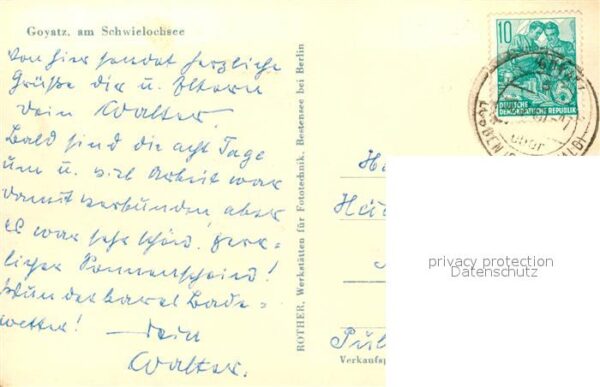 Goyatz, am Schwielochsee
Von hier sendet herzliche
Grüße dir u. Eltern
Dein Walter.
Bald sind die acht Tage
um u. viel Arbeit war
damit verbunden aber
es war sehr schön! Herr-
licher Sonnenschein!
Wunderbares Bade-
wetter! Dein
Walter.
ROTHER, Werkstätten für Fototechnik, Bestensee bei Berlin
10
DEUTSCHE
DEMOKRATISCHE REPUBLIK
über
privacy protection
Datenschutz
Verkaufsp